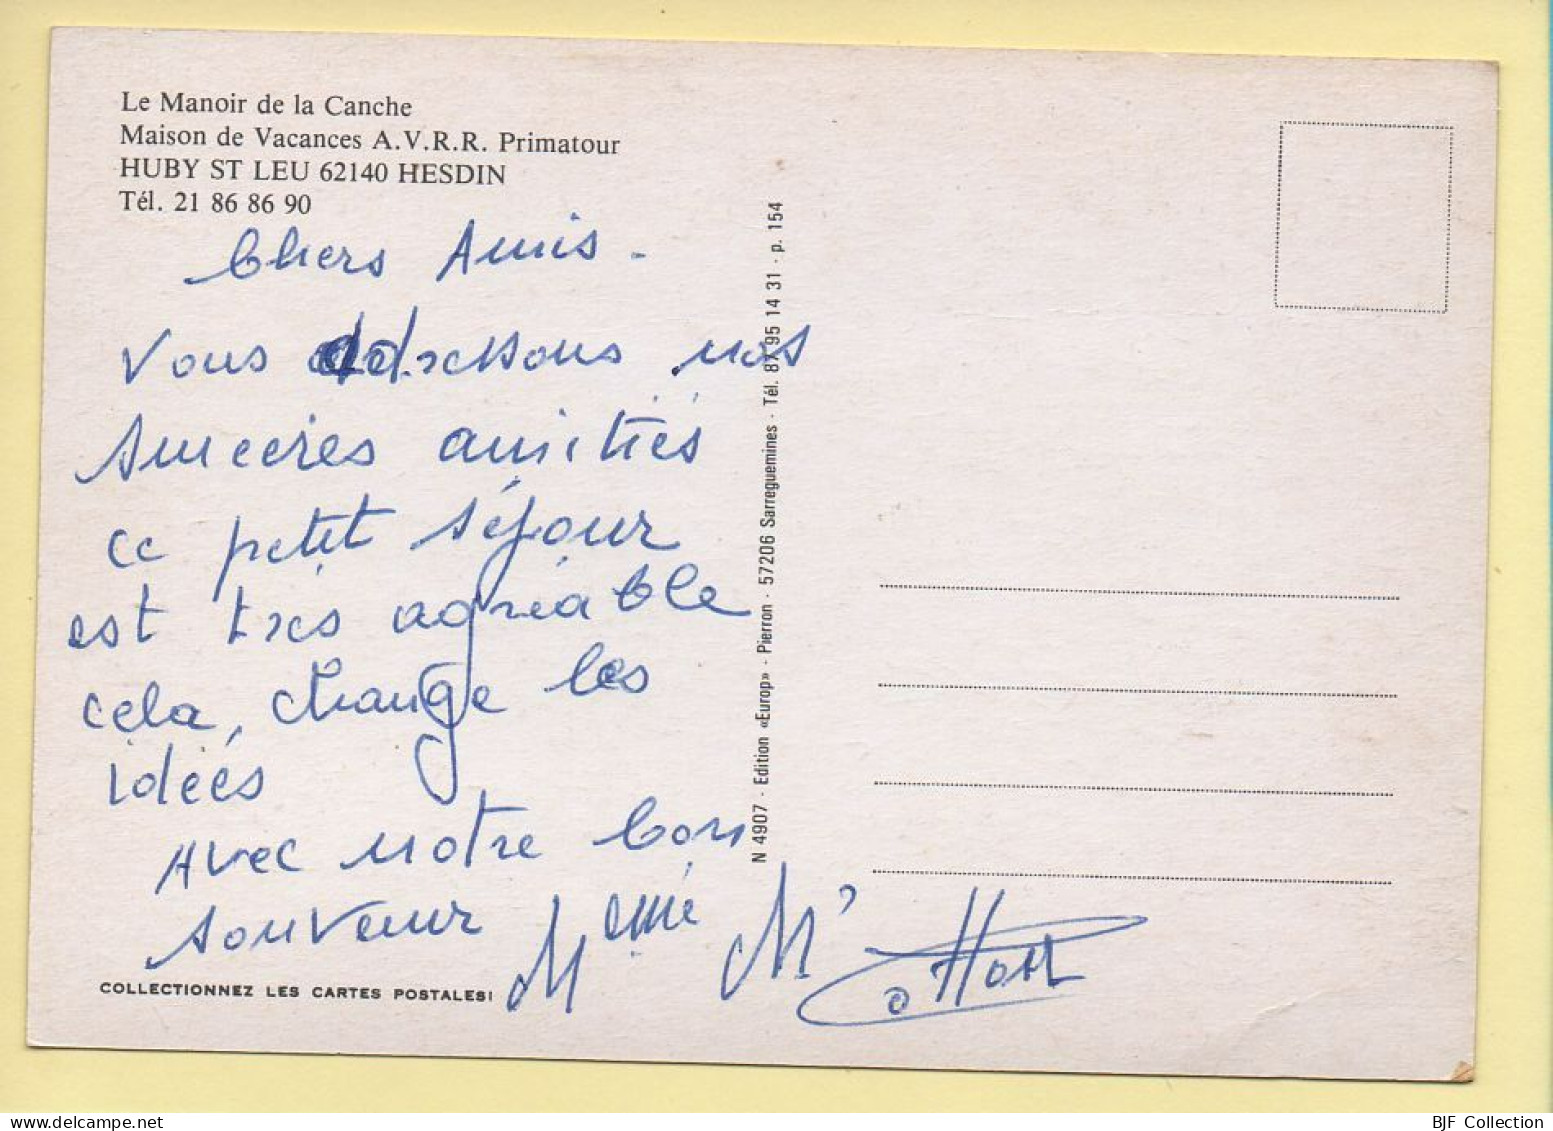 Le Manoir de la Canche
Maison de Vacances A.V.R.R. Primatour
HUBY ST LEU 62140 HESDIN
Tél. 21 86 86 90
Chers Amis -
Vous adressons nos
sincères amitiés
ce petit séjour
est très agréable
cela, change les
ideés
Avec notre bon
souvenir Meme Mr
COLLECTIONNEZ LES CARTES POSTALES!
N 4907 - Edition «Europ» - Pierron - 57206 Sarreguemines - Tél. 87 95 14 31 - p. 154
BJF Collection